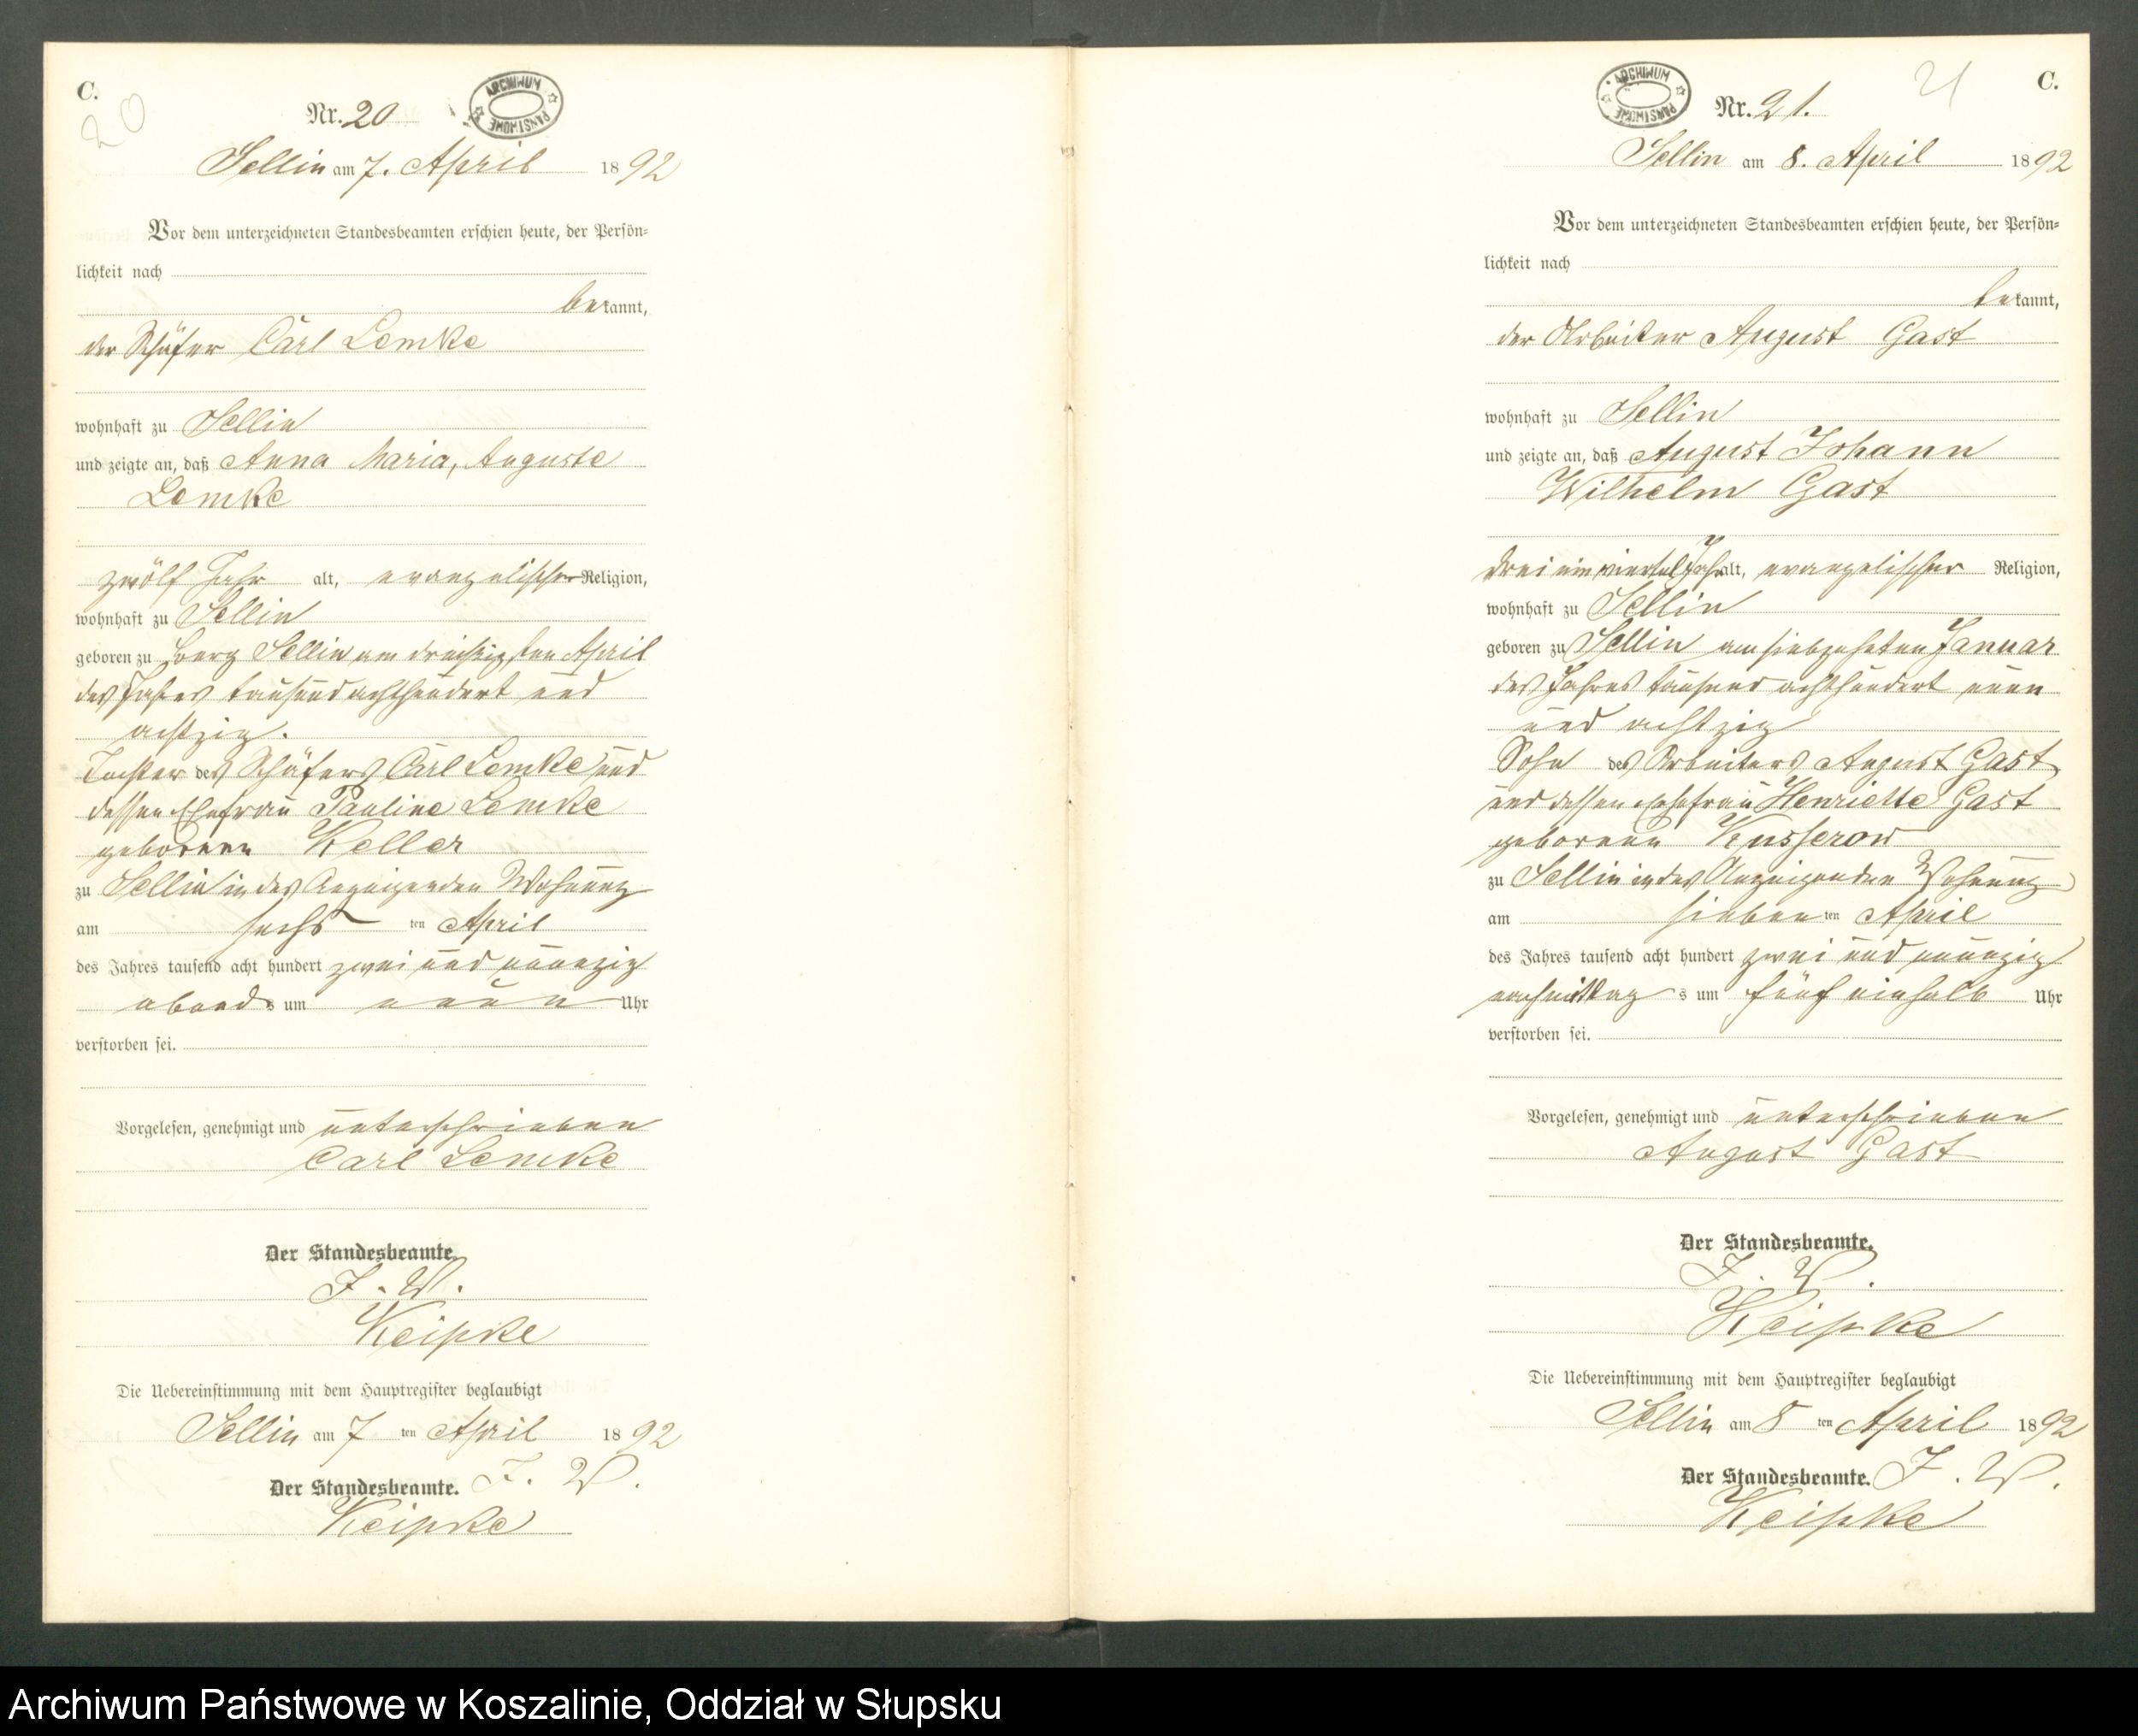 C.
20
Nr. 20
ARCHIWUM PAŃSTWOWE
Sellin am 7. April 1892
Vor dem unterzeichneten Standesbeamten erschien heute, der Persön-
lichkeit nach
bekannt,
der Schäfer Carl Lemke
wohnhaft zu Sellin
und zeigte an, daß Anna Maria, Auguste
Lemke
zwölf Jahr alt, evangelischer Religion,
wohnhaft zu Sellin
geboren zu Sellin am dreißigsten April
des Jahres tausend achthundert und
achtzig.
Tochter des Schäfers Carl Lemke und
dessen Ehefrau Pauline Lemke
geborenen Keller
zu Sellin in des Anzeigenden Wohnung
am sechsten April
des Jahres tausend acht hundert zwei und neunzig
abends um neun Uhr
verstorben sei.
Vorgelesen, genehmigt und unterschrieben
Carl Lemke
Der Standesbeamte.
J. V.
Keipke
Die Uebereinstimmung mit dem Hauptregister beglaubigt
Sellin am 7ten April 1892
Der Standesbeamte. J. V.
Keipke
C.
21
Nr. 21.
ARCHIWUM PAŃSTWOWE
Sellin am 8. April 1892
Vor dem unterzeichneten Standesbeamten erschien heute, der Persön-
lichkeit nach
bekannt,
der Arbeiter August Gast
wohnhaft zu Sellin
und zeigte an, daß August Johann
Wilhelm Gast
drei ein viertel Jahr alt, evangelischer Religion,
wohnhaft zu Sellin
geboren zu Sellin am siebzehnten Januar
des Jahres tausend achthundert neun
und achtzig
Sohn des Arbeiters August Gast
und dessen Ehefrau Henriette Gast
geborenen Kusserow
zu Sellin in des Anzeigenden Wohnung
am siebenten April
des Jahres tausend acht hundert zwei und neunzig
nachmittags um fünf einhalb Uhr
verstorben sei.
Vorgelesen, genehmigt und unterschrieben
August Gast
Der Standesbeamte.
J. V.
Keipke
Die Uebereinstimmung mit dem Hauptregister beglaubigt
Sellin am 8ten April 1892
Der Standesbeamte. J. V.
Keipke
Archiwum Państwowe w Koszalinie, Oddział w Słupsku